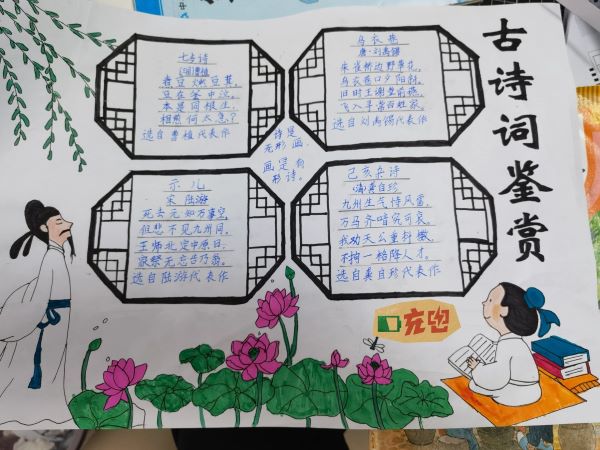 古诗词鉴赏
七步诗
煮豆燃豆萁,
豆在釜中泣。
本是同根生,
相煎何太急?
选自曹植代表作
乌衣巷
唐·刘禹锡
朱雀桥边野草花,
乌衣巷口夕阳斜。
旧时王谢堂前燕,
飞入寻常百姓家。
选自刘禹锡代表作
诗是
无形画
画是有
形诗。
示儿
宋 陆游
死去元知万事空,
但悲不见九州同。
王师北定中原日,
家祭无忘告乃翁。
选自陆游代表作
己亥杂诗
清龚自珍
九州生气恃风雷,
万马齐喑究可哀。
我劝天公重抖擞,
不拘一格降人才。
选自龚自珍代表作
充电